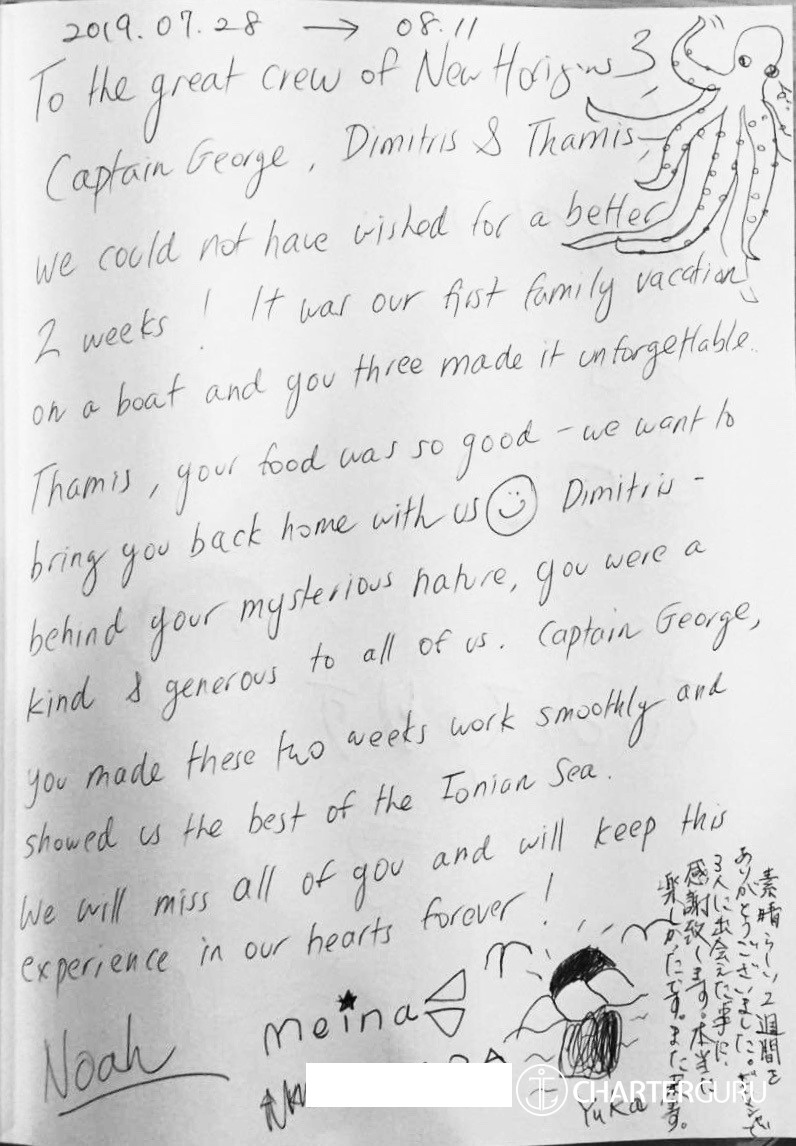 2019.07.28 → 08.11
To the great crew of New Horizons 3
Captain George, Dimitris & Thamis
we could not have wished for a better
2 weeks! It was our first family vacation
on a boat and you three made it unforgettable.
Thamis, your food was so good - we want to
bring you back home with us Dimitris -
behind your mysterious nature, you were a
kind & generous to all of us. Captain George,
you made these two weeks work smoothly and
showed us the best of the Ionian Sea.
We will miss all of you and will keep this
experience in our hearts forever!
素晴らしい2週間を
ありがとうございました。
3人に出会えた事に、
感謝致します。本当に
楽しかったです。また来ます。
Noah
meina
Yuka
CHARTERGURU